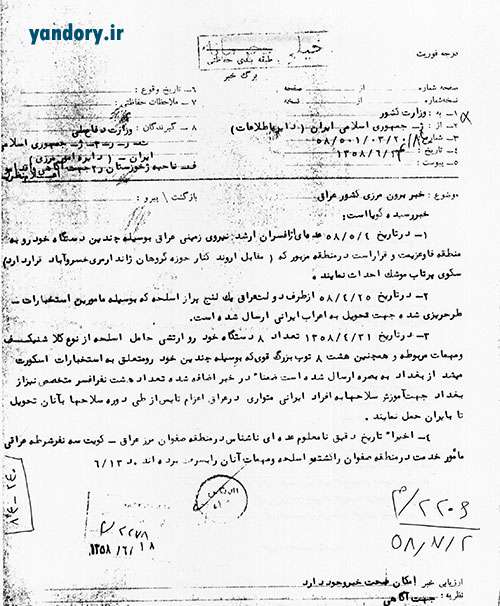 yandory.ir
خیلی محرمانه
طبقه بندی حفاظتی
برگ خبر
درجه فوریت
صفحه شماره از صفحه
نسخه شماره از نسخه
۱- به : وزارت کشور
۲- از : ژ - جمهوری اسلامی ایران ( دایره اطلاعات )
۳- شماره ۵۸/۵۰۱/۰۳/۲۰/۸
۴- تاریخ ۱۳۵۸/۶/۴
۵- پیوست :
۶- تاریخ وقوع :
۷- ملاحظات حفاظتی :
۸- گیرندگان : وزارت دفاع ملی
جمهوری اسلامی
ایران - ( دایره امور مرزی )
ناحیه ژ خوزستان جهت آگاهی
موضوع : خبر برون مرزی کشور عراق
بازگشت / پیرو :
خبر رسیده گویا است :
۱- در تاریخ ۵۸/۵/۴ عده ای از افسران ارشد نیروی زمینی عراق بوسیله چندین دستگاه خودرو به
منطقه فاو عزیمت و قرار است در منطقه مزبور که ( مقابل اروند کنار حوزه گروهان ژاندارمری خسروآباد قرار دارد )
سکوی پرتاب موشک احداث نمایند
۲- در تاریخ ۵۸/۴/۲۵ از طرف دولت عراق یک لنج پر از اسلحه که بوسیله مامورین استخبارات -
طرح ریزی شده جهت تحویل به اعراب ایرانی ارسال شده است .
۳- در تاریخ ۱۳۵۸/۴/۲۱ تعداد ۸ دستگاه خودرو ارتشی حامل اسلحه از نوع کلاشنیکف
ومهمات مربوطه و همچنین هشت ۸ توپ بزرگ قوی که بوسیله چندین خودرو متعلق به استخبارات اسکورت
میشد از بغداد به بصره ارسال شده است ضمنا" در خبر اضافه شده تعداد هشت نفر افسر متخصص نیز از
بغداد جهت آموزش سلاحها به افراد ایرانی متواری در عراق اعزام تا پس از طی دوره سلاحها به آنان تحویل
تا بایران حمل نمایند .
۴- اخیرا" تاریخ دقیق نامعلوم عده ای ناشناس در منطقه صفوان مرز عراق - کویت سه نفر شرطه عراقی
مأمور خدمت در منطقه صفوان را کشته و اسلحه ومهمات آنان را بسرقت برده اند . د ۶/۱۳
۲۴۰ - ۸۴
۲۲۷۸/م
۱۳۵۸/۶/۱۸
م/۲۲۰۶
۵۸/۷/۲
ارزیابی خبر امکان صحت خبر وجود دارد
نظریه : جهت آگاهی